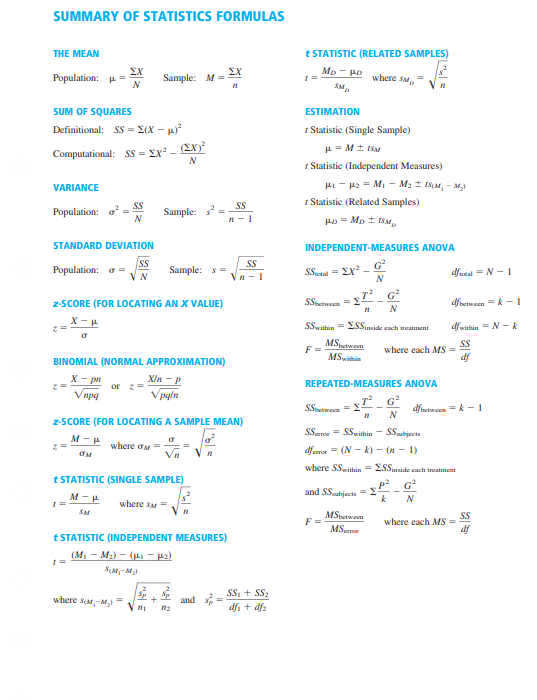 SUMMARY OF STATISTICS FORMULAS
THE MEAN
Population: μ = ΣX/N Sample: M = ΣX/n
SUM OF SQUARES
Definitional: SS = Σ(X − μ)²
Computational: SS = ΣX² − (ΣX)²/N
VARIANCE
Population: σ² = SS/N Sample: s² = SS/(n − 1)
STANDARD DEVIATION
Population: σ = √(SS/N) Sample: s = √(SS/(n − 1))
z-SCORE (FOR LOCATING AN X VALUE)
z = (X − μ)/σ
BINOMIAL (NORMAL APPROXIMATION)
z = (X − pn)/√(npq) or z = (X/n − p)/√(pq/n)
z-SCORE (FOR LOCATING A SAMPLE MEAN)
z = (M − μ)/σM where σM = σ/√n = √(σ²/n)
t STATISTIC (SINGLE SAMPLE)
t = (M − μ)/sM where sM = √(s²/n)
t STATISTIC (INDEPENDENT MEASURES)
t = ((M₁ − M₂) − (μ₁ − μ₂))/s(M₁−M₂)
where s(M₁−M₂) = √(s²p/n₁ + s²p/n₂) and s²p = (SS₁ + SS₂)/(df₁ + df₂)
t STATISTIC (RELATED SAMPLES)
t = (MD − μD)/sMD where sMD = √(s²/n)
ESTIMATION
t Statistic (Single Sample)
μ = M ± tsM
t Statistic (Independent Measures)
μ₁ − μ₂ = M₁ − M₂ ± ts(M₁ − M₂)
t Statistic (Related Samples)
μD = MD ± tsMD
INDEPENDENT-MEASURES ANOVA
SStotal = ΣX² − G²/N dftotal = N − 1
SSbetween = ΣT²/n − G²/N dfbetween = k − 1
SSwithin = ΣSSinside each treatment dfwithin = N − k
F = MSbetween/MSwithin where each MS = SS/df
REPEATED-MEASURES ANOVA
SSbetween = ΣT²/n − G²/N dfbetween = k − 1
SSerror = SSwithin − SSsubjects
dferror = (N − k) − (n − 1)
where SSwithin = ΣSSinside each treatment
and SSsubjects = ΣP²/k − G²/N
F = MSbetween/MSerror where each MS = SS/df